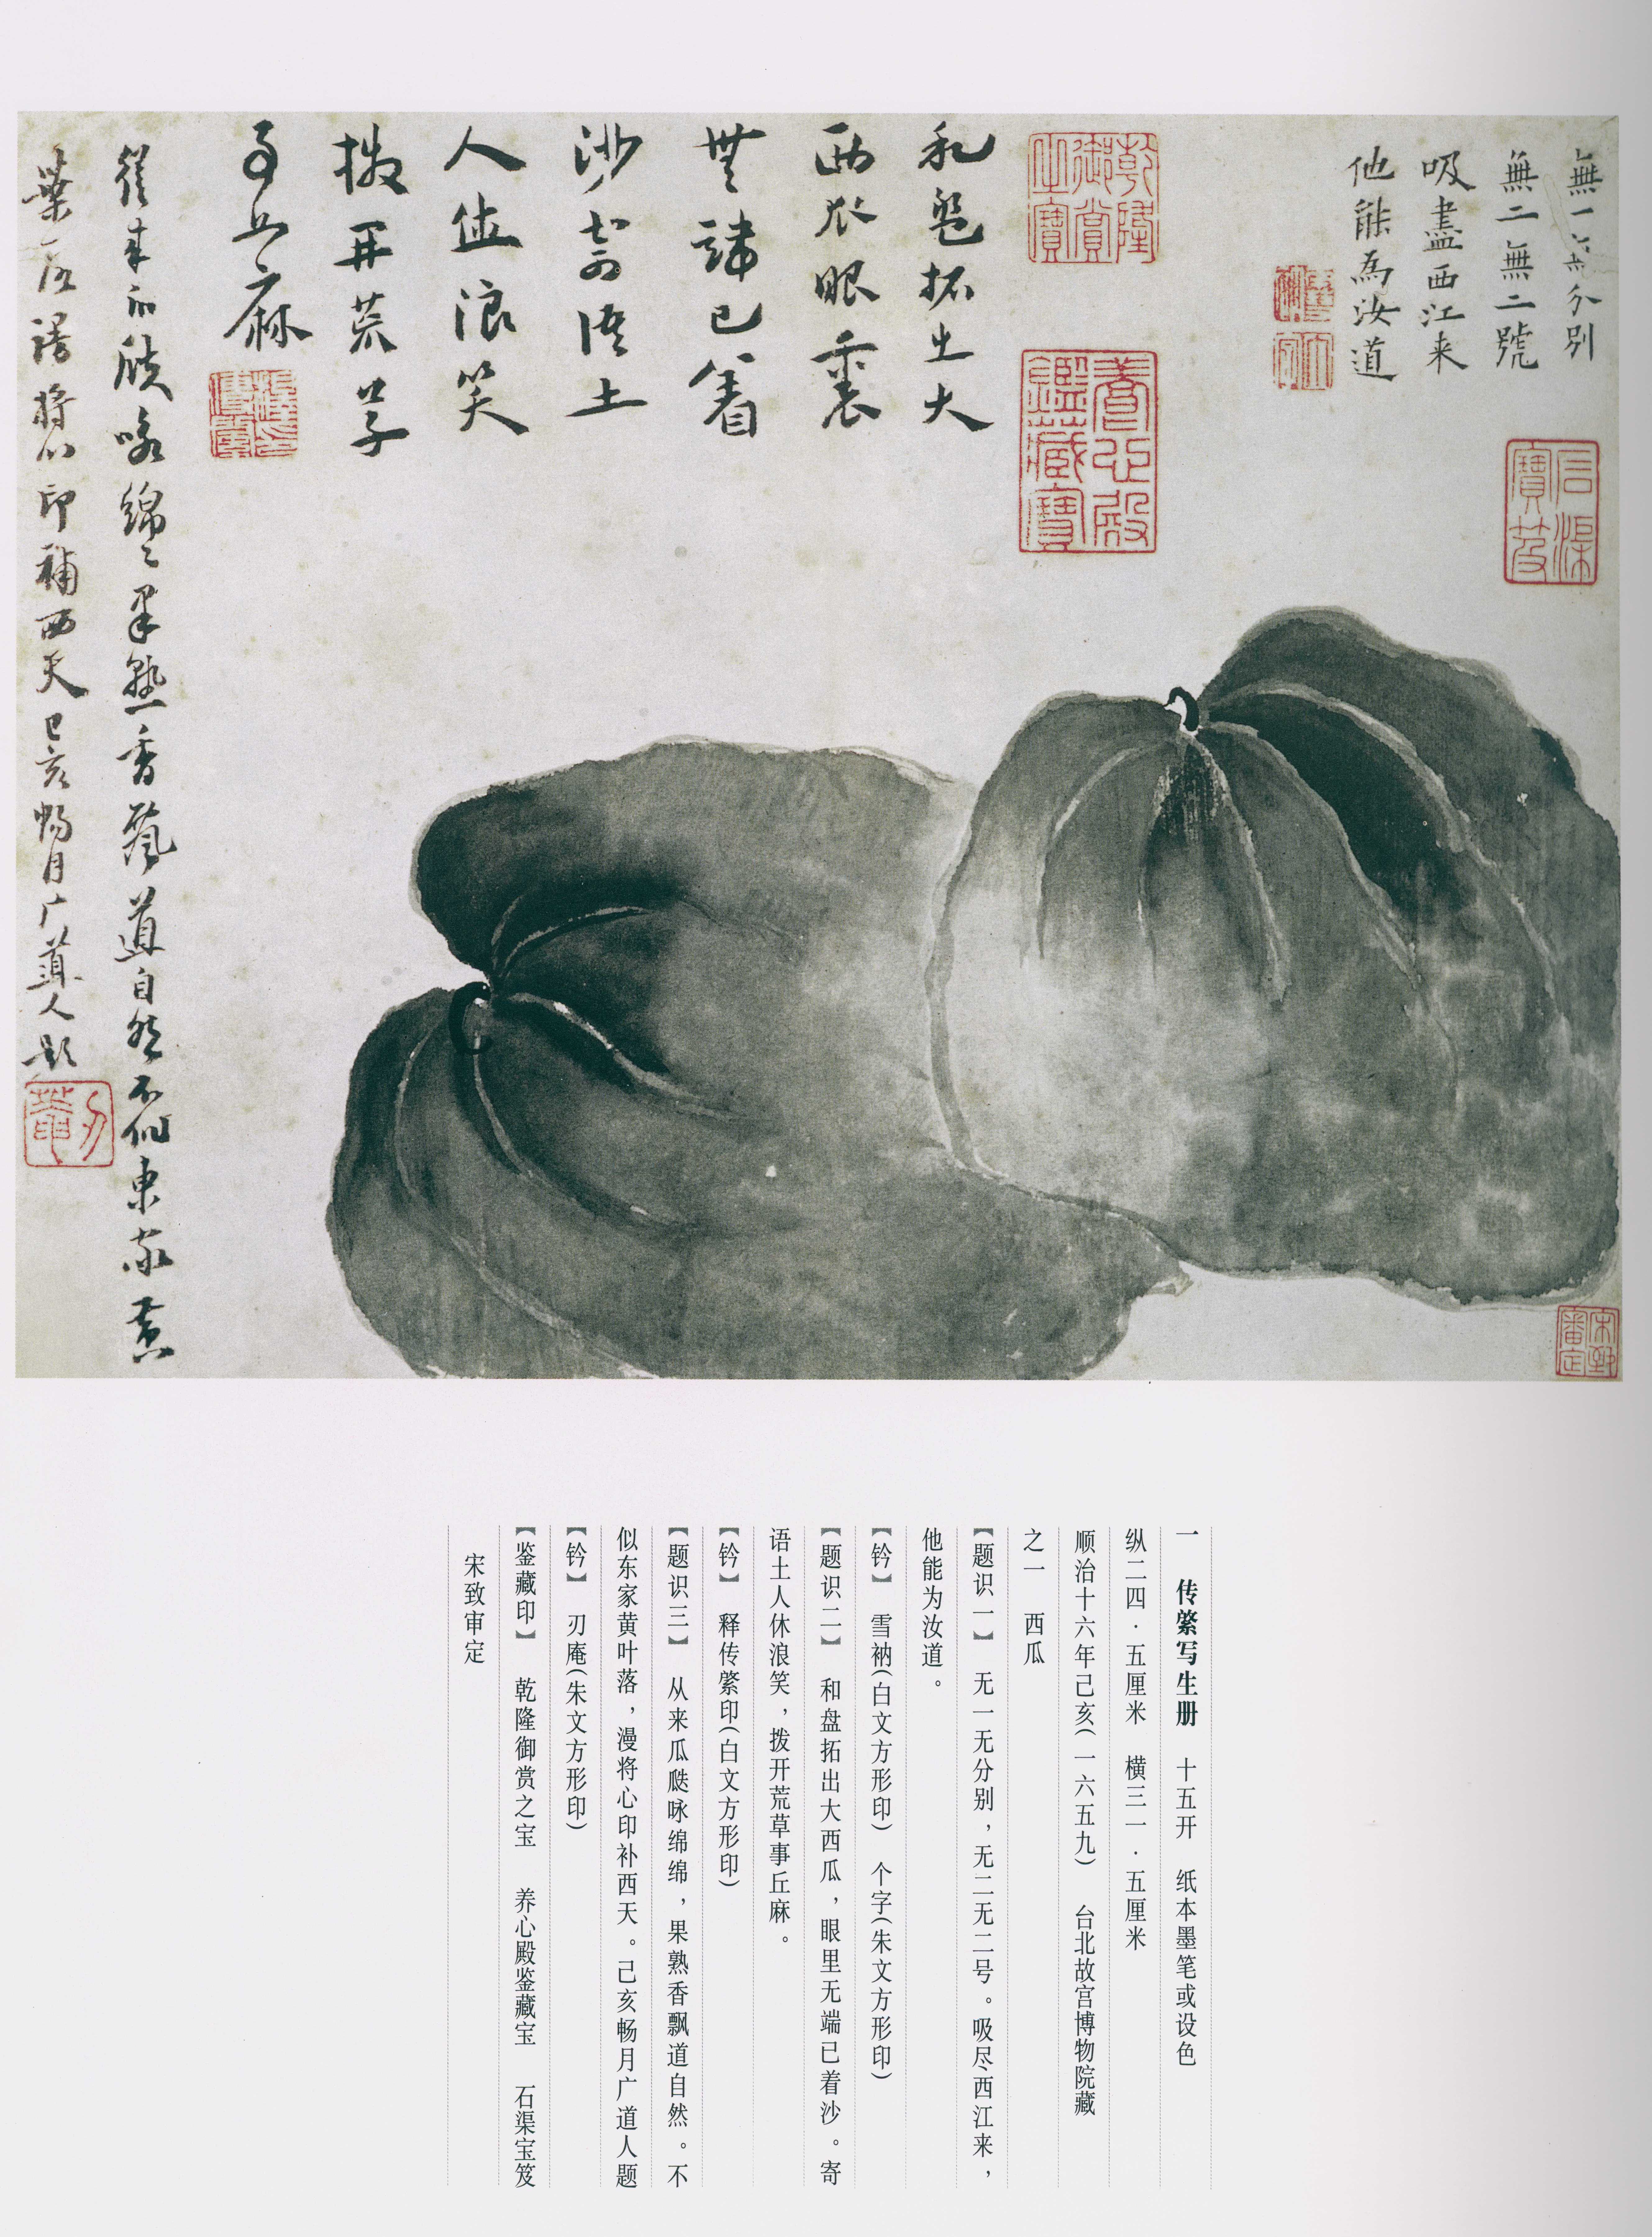 無一無分別
無二無二號
吸盡西江来
他能為汝道
石渠寶笈
乾隆御賞之寶
養心殿鑑藏寶
和盤拓出大
西瓜眼裏
無端已着
沙寄語土
人休浪笑
撥開荒草
事丘麻
釋傳綮印
從来瓜瓞咏綿〻果熟香飄道自然不似東家黄
葉落謾將心印補西天己亥暢月广道人題
刃菴
宋致審定
一 传綮写生册 十五开 纸本墨笔或设色
纵二四·五厘米 横三一·五厘米
顺治十六年己亥(一六五九) 台北故宫博物院藏
之一 西瓜
【题识一】 无一无分别，无二无二号。吸尽西江来，
他能为汝道。
【钤】 雪衲(白文方形印) 个字(朱文方形印)
【题识二】 和盘拓出大西瓜，眼里无端已着沙。寄
语土人休浪笑，拨开荒草事丘麻。
【钤】 释传綮印(白文方形印)
【题识三】 从来瓜瓞咏绵绵，果熟香飘道自然。不
似东家黄叶落，漫将心印补西天。己亥畅月广道人题
【钤】 刃庵(朱文方形印)
【鉴藏印】 乾隆御赏之宝 养心殿鉴藏宝 石渠宝笈
宋致审定